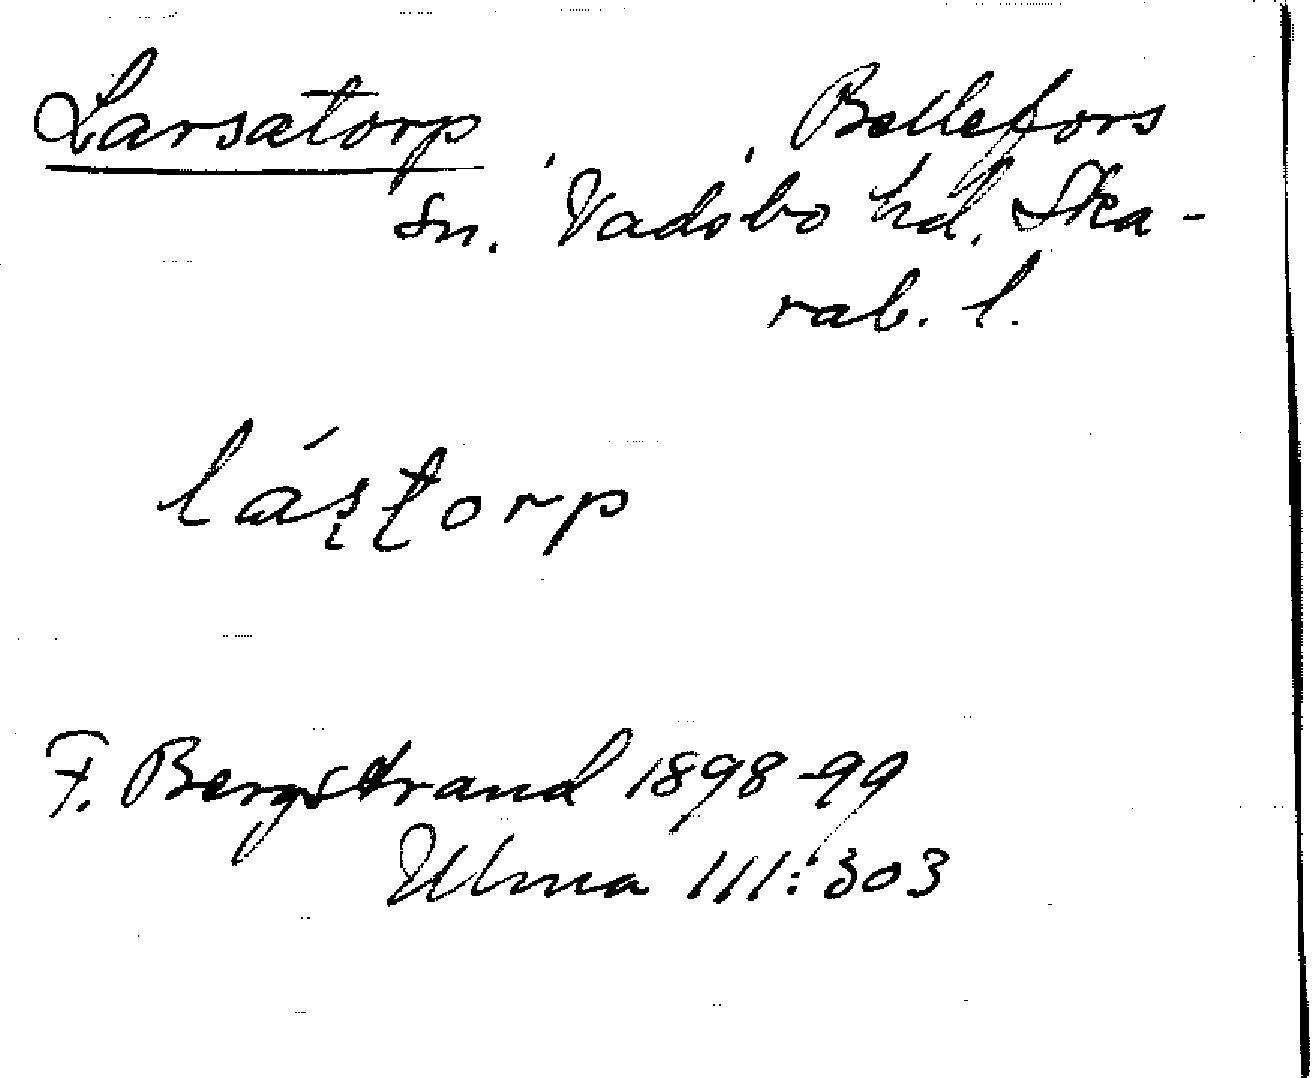 Larsatorp, , Bellefors
sn. Vadsbo hd. Ska-
rab. l.
lás̨t̨orp
F. Bergstrand 1898-99
Ulma 111:303